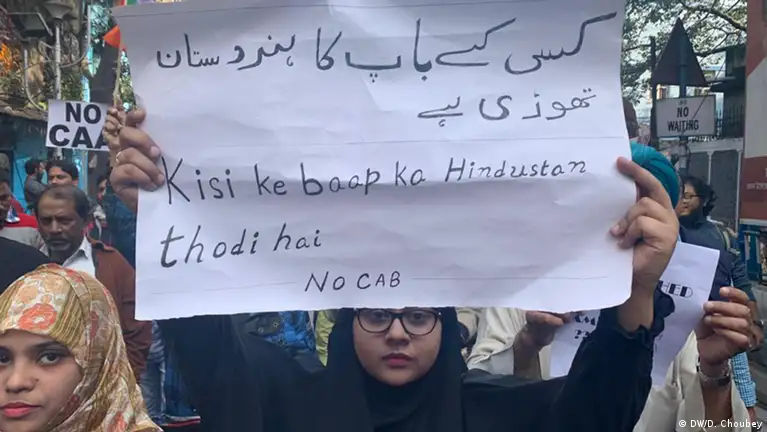 کسی کے باپ کا ہندوستان
تھوڑی ہے
Kisi ke baap ka Hindustan
thodi hai
NO CAB
NO
CAA
NO
WAITING
HED
© DW/D. Choubey